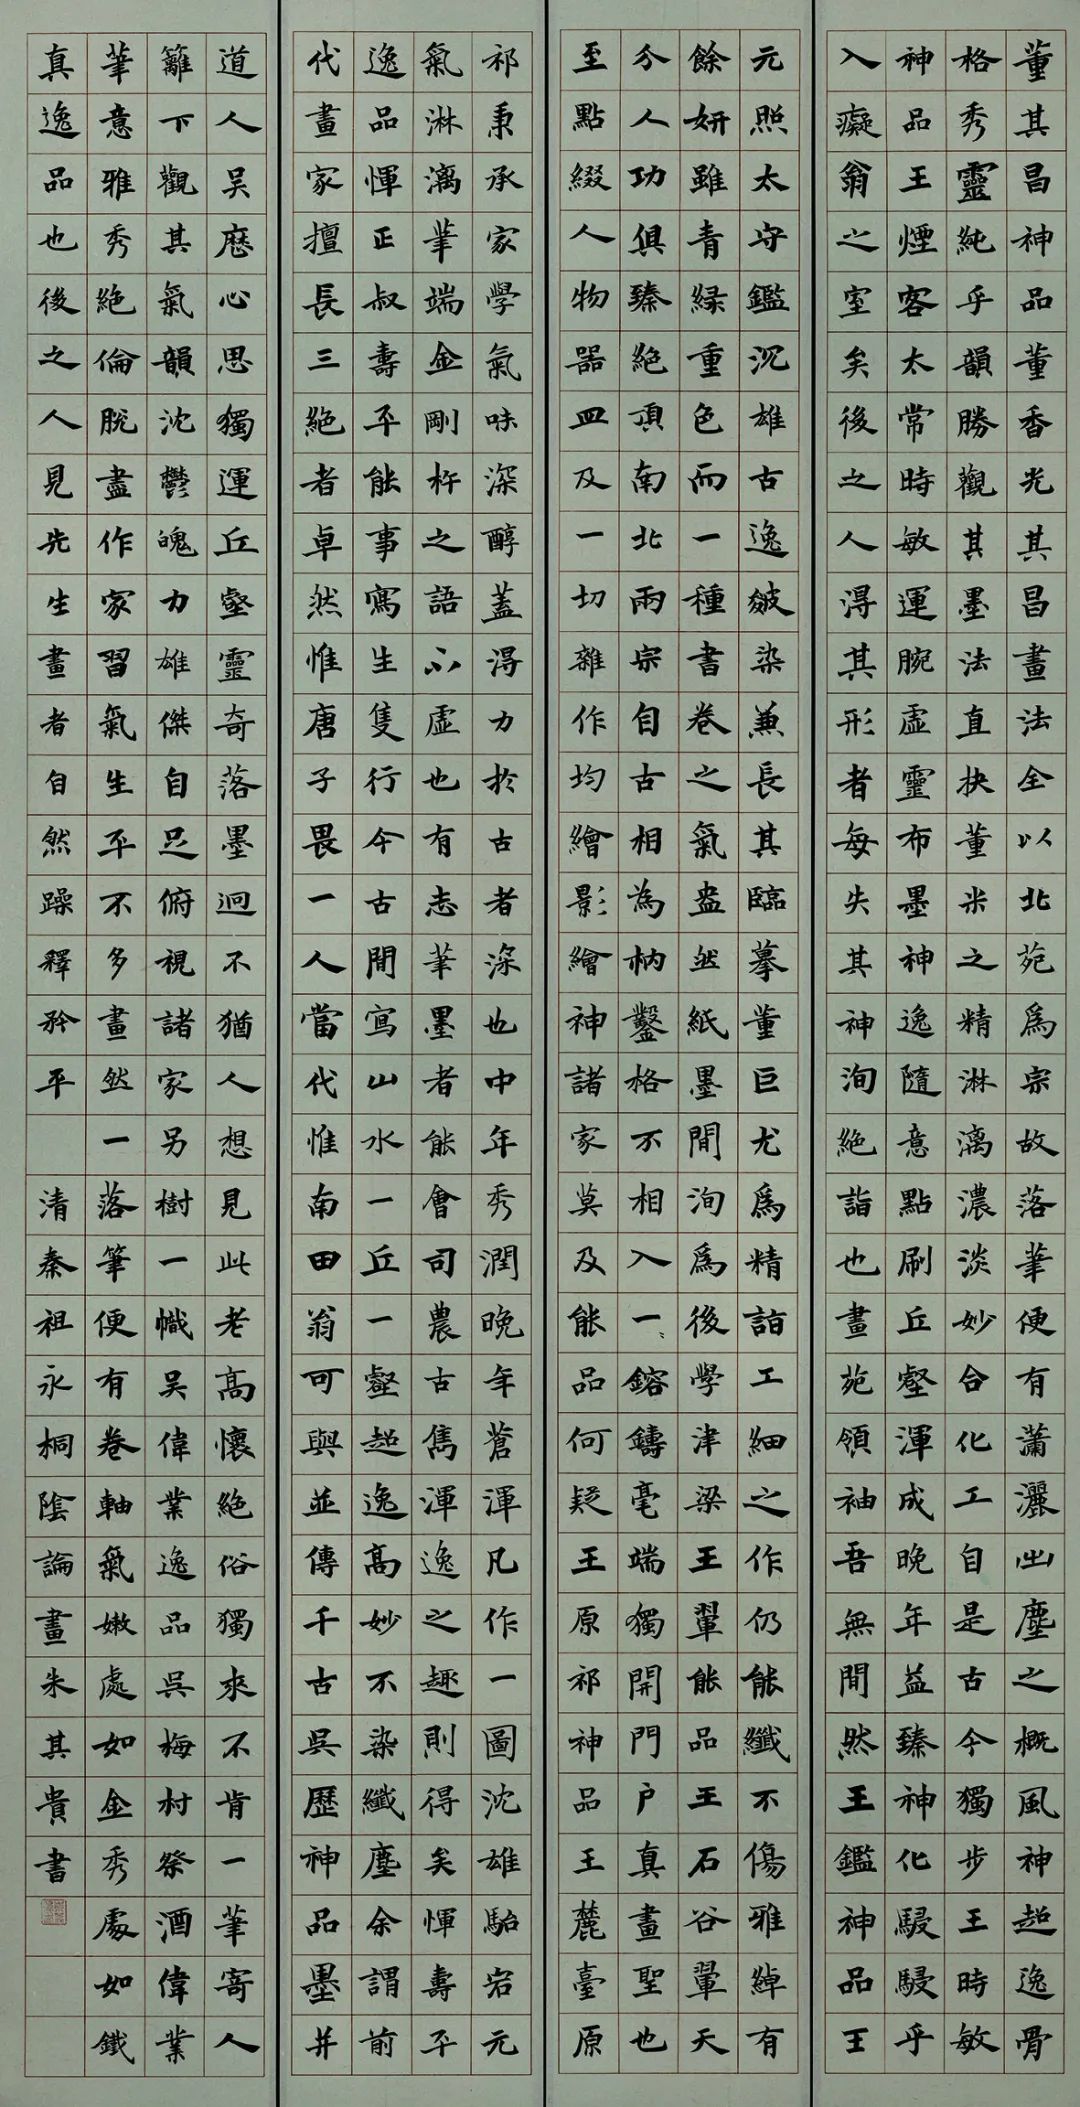 董其昌神品董香光其昌畫法全以北苑爲宗故落筆便有瀟灑出塵之概風神超逸骨
格秀靈純乎韻勝觀其墨法直抉董米之精淋漓濃淡妙合化工自是古今獨步王時敏
神品王煙客太常時敏運腕虛靈布墨神逸隨意點刷丘壑渾成晚年益臻神化駸駸乎
入癡翁之室矣後之人淂其形者每失其神洵絕詣也畫苑領袖吾無間然王鑑神品王
元照太守鑑沉雄古逸皴染兼長其臨摹董巨尤爲精詣工細之作仍能纖不傷雅綽有
餘妍雖青綠重色而一種書卷之氣盎然紙墨間洵爲後學津梁王翬能品王石谷翬天
分人功俱臻絕頂南北兩宗自古相為枘鑿格不相入一鎔鑄毫端獨開門戶真畫聖也
至點綴人物器皿及一切雜作均繪影繪神諸家莫及能品何疑王原祁神品王麓臺原
祁秉承家學氣味深醇蓋淂力於古者深也中年秀潤晚年蒼渾凡作一圖沈雄駘宕元
氣淋漓筆端金剛杵之語不虛也有志筆墨者能會司農古雋渾逸之趣則得矣惲壽平
逸品惲正叔壽平能事寫生隻行今古間寫山水一丘一壑超逸高妙不染纖塵余謂前
代畫家擅長三絕者卓然惟唐子畏一人當代惟南田翁可與並傳千古吳歷神品墨井
道人吳歷心思獨運丘壑靈奇落墨迥不猶人想見此老高懷絕俗獨來不肯一筆寄人
籬下觀其氣韻沈鬱魄力雄傑自足俯視諸家另樹一幟吳偉業逸品吳梅村祭酒偉業
筆意雅秀絕倫脫盡作家習氣生平不多畫然一落筆便有卷軸氣嫩處如金秀處如鐵
真逸品也後之人見先生畫者自然躁釋矜平 清秦祖永桐陰論畫朱其貴書